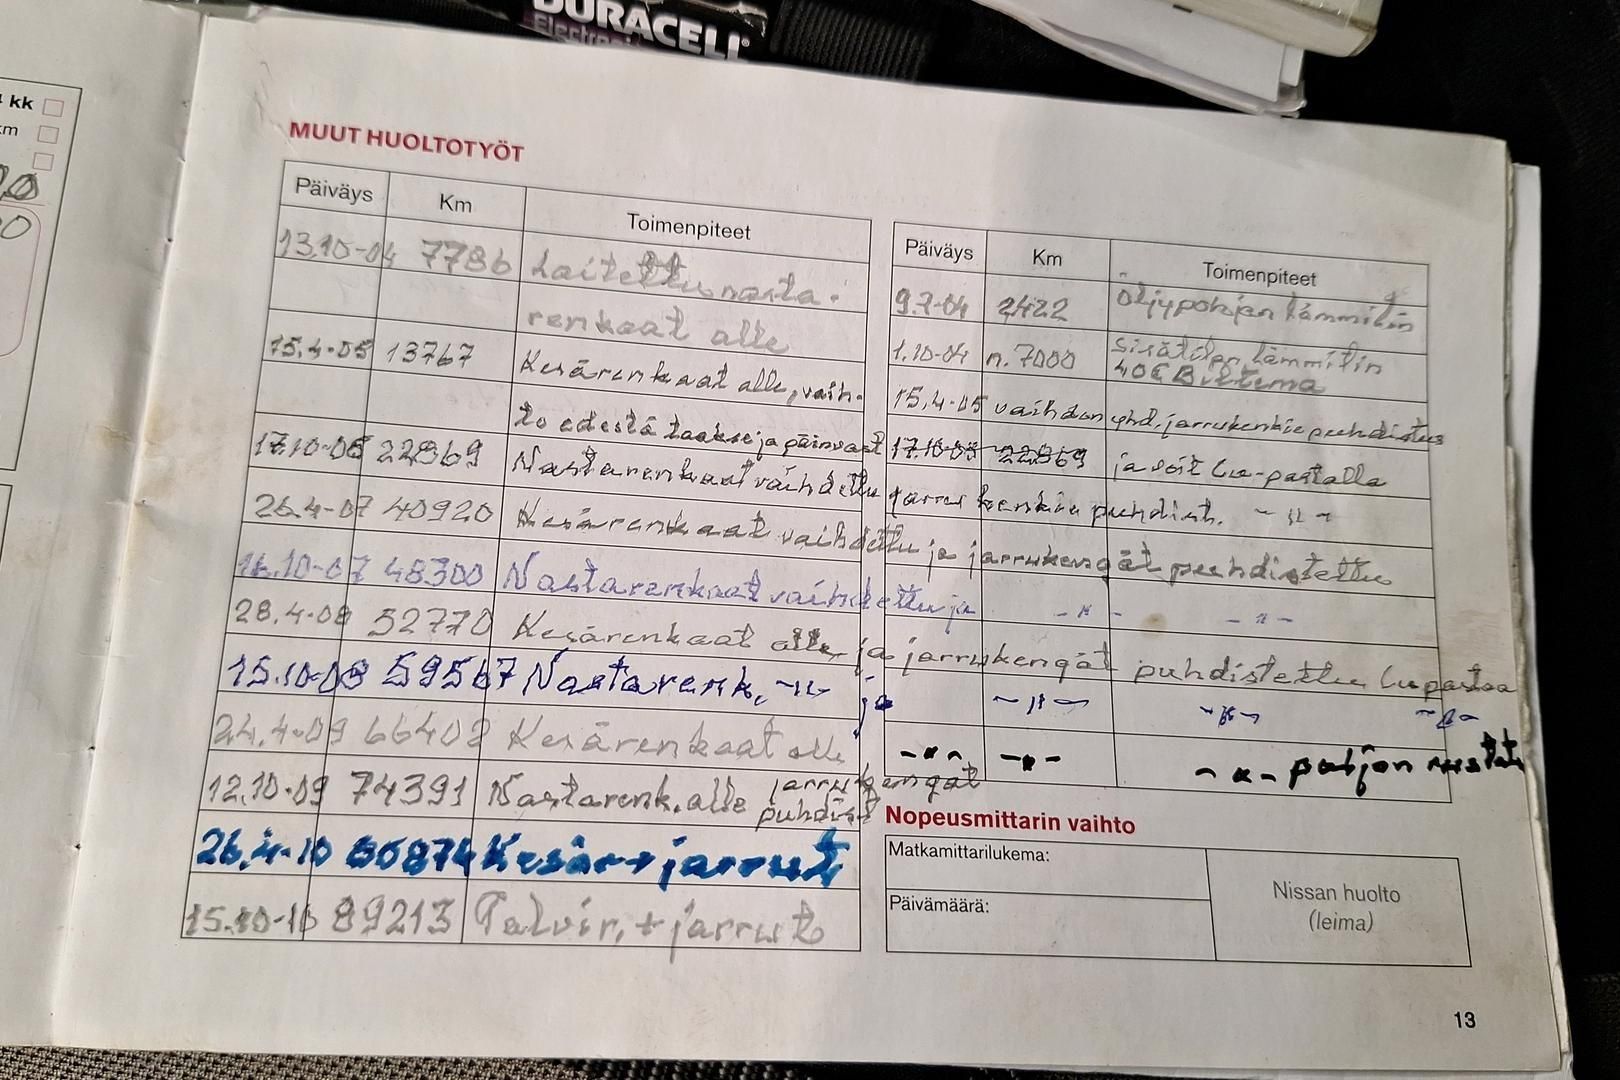 DURACELL®
Electroni
4 kk
km
MUUT HUOLTOTYÖT
Päiväys Km Toimenpiteet
13.10-04 7786 Laitettu nasta-
renkaat alle
15.4-05 13767 Kesärenkaat alle, vaih-
to edestä taakse ja päinvast
17.10-05 22969 Nastarenkaat vaihdettu
26.4-07 40920 Kesärenkaat vaihdettu ja jarrukengät puhdistettu
16.10-07 48300 Nastarenkaat vaihdettu ja -"- -"-
28.4-08 52770 Kesärenkaat alle ja jarrukengät puhdistettu Cu pastaa
15.10-08 59567 Nastarenk. -"- ja -"- -"- -"-
24.4-09 66402 Kesärenkaat alle -"- -"- -"- paljon ruostetta
12.10-09 74391 Nastarenk. alle jarrukengät
puhdist
26.4-10 80874 Kesär + jarrut
15.10-10 89213 Talvir. + jarrut
Päiväys Km Toimenpiteet
9.7-04 2422 Öljypohjan lämmitin
1.10-04 n. 7000 Sisätilan lämmitin
40€ Biltema
15.4-05 vaihdon yhd. jarrukenkie puhdistus
17.10-05 22969 ja voit Cu-pastalla
jarrukenkie puhdist. -"-
Nopeusmittarin vaihto
Matkamittarilukema:
Päivämäärä:
Nissan huolto
(leima)
13